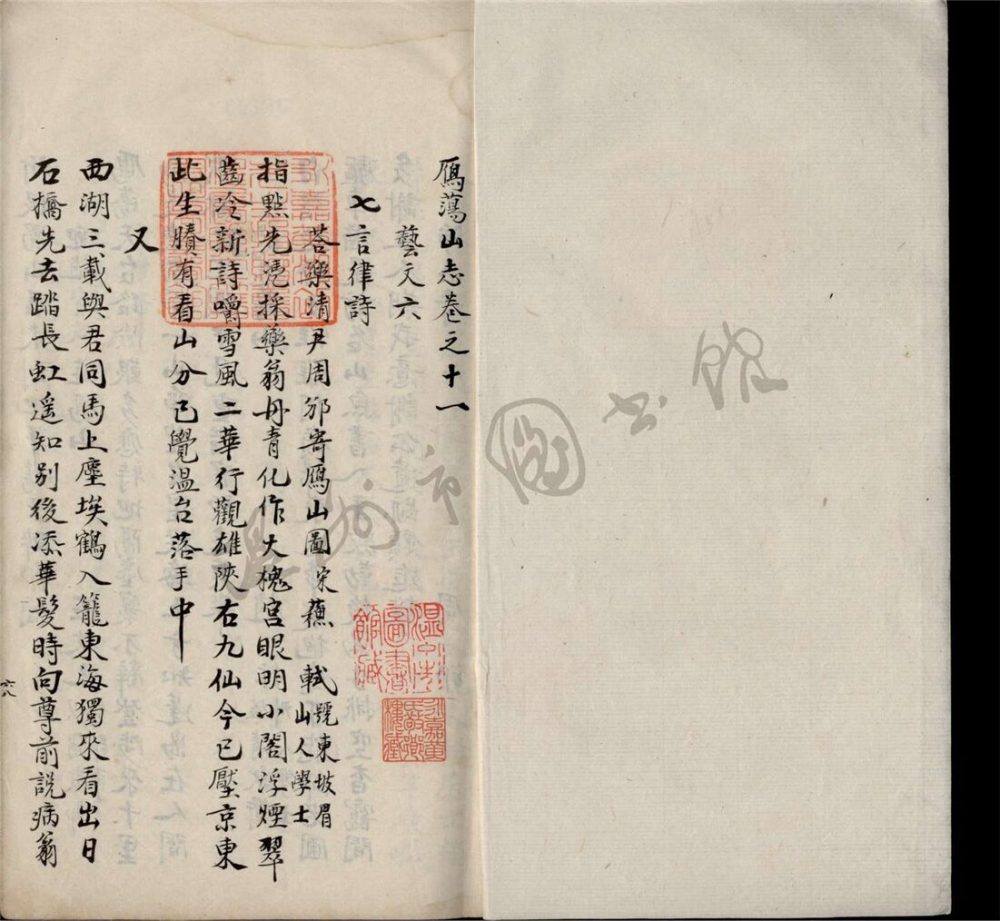 鴈蕩山志卷之十一
藝文六
七言律詩
荅樂清尹周邠寄鴈山圖宋蘇軾號東坡眉山人學士
指㸃先凴採藥翁丹青化作大槐宫眼明小閣浮煙翠
齒冷新詩嚼雪風二華行觀雄陝右九仙今已壓京東
此生賸有看山分已覺温台落手中
又
西湖三載與君同馬上塵埃鶴入籠東海獨來看出日
石橋先去踏長虹遥知别後添華髮時向尊前説病翁
温州市圖書館
温州市圖書館藏